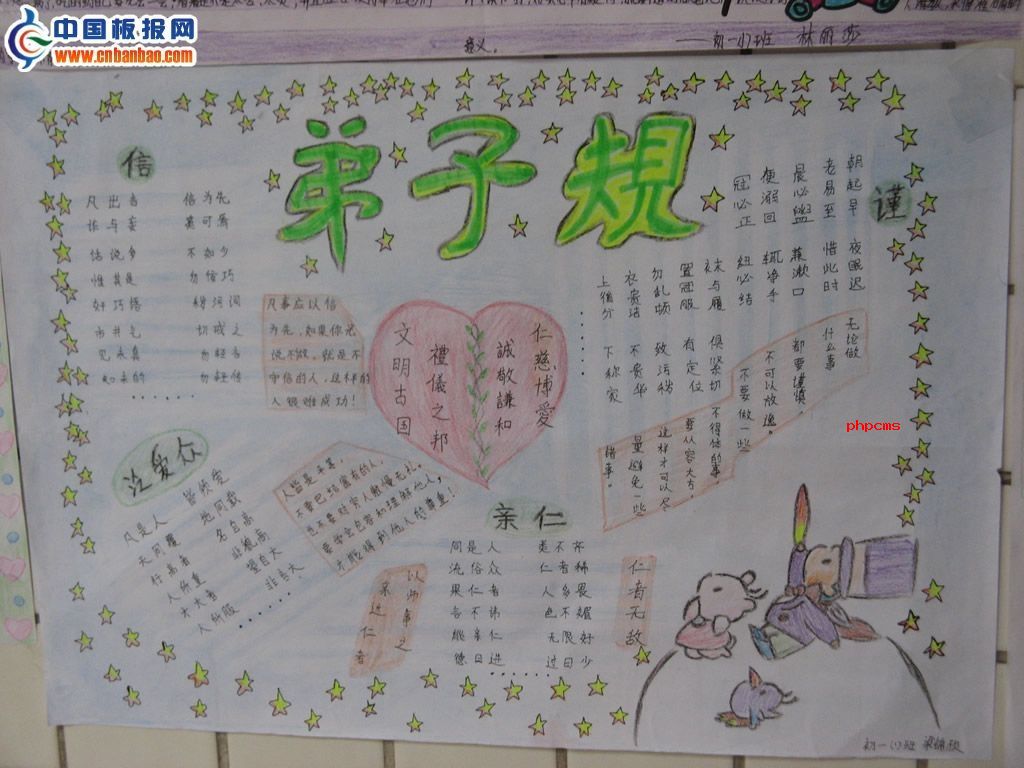 中国板报网
www.cnbanbao.com
意义。
——初一(1)班 林丽莎
弟子规
信
凡出言 信为先
诈与妄 奚可焉
话说多 不如少
惟其是 勿佞巧
奸巧语 秽污词
市井气 切戒之
见未真 勿轻言
知未的 勿轻传
......
凡事应以信
为先,如果你光
说不做,就是不
守信的人,这样的
人很难成功!
仁慈博愛
誠敬謙和
禮儀之邦
文明古国
谨
朝起早 夜眠迟
老易至 惜此时
晨必盥 兼漱口
便溺回 辄净手
冠必正 纽必结
袜与履 俱紧切
置冠服 有定位
勿乱顿 致污秽
衣贵洁 不贵华
上循分 下称家
......
无论做
什么事
都要谨慎,
不可以放逸。
不要做一些
不得体的事,
要从容大方,
这样才可以尽
量避免一些
错事。
phpcms
泛爱众
凡是人 皆须爱
天同覆 地同载
行高者 名自高
人所重 非貌高
才大者 望自大
人所服 非言大
......
人皆是平等,
不要巴结富有的人,
也不要对穷人傲慢无礼,
要学会包容和理解他人,
才能得到他人的尊重!
亲仁
同是人 类不齐
流俗众 仁者稀
果仁者 人多畏
言不讳 色不媚
能亲仁 无限好
德日进 过日少
......
以师事之
亲近仁者
仁者无敌
初一(1)班